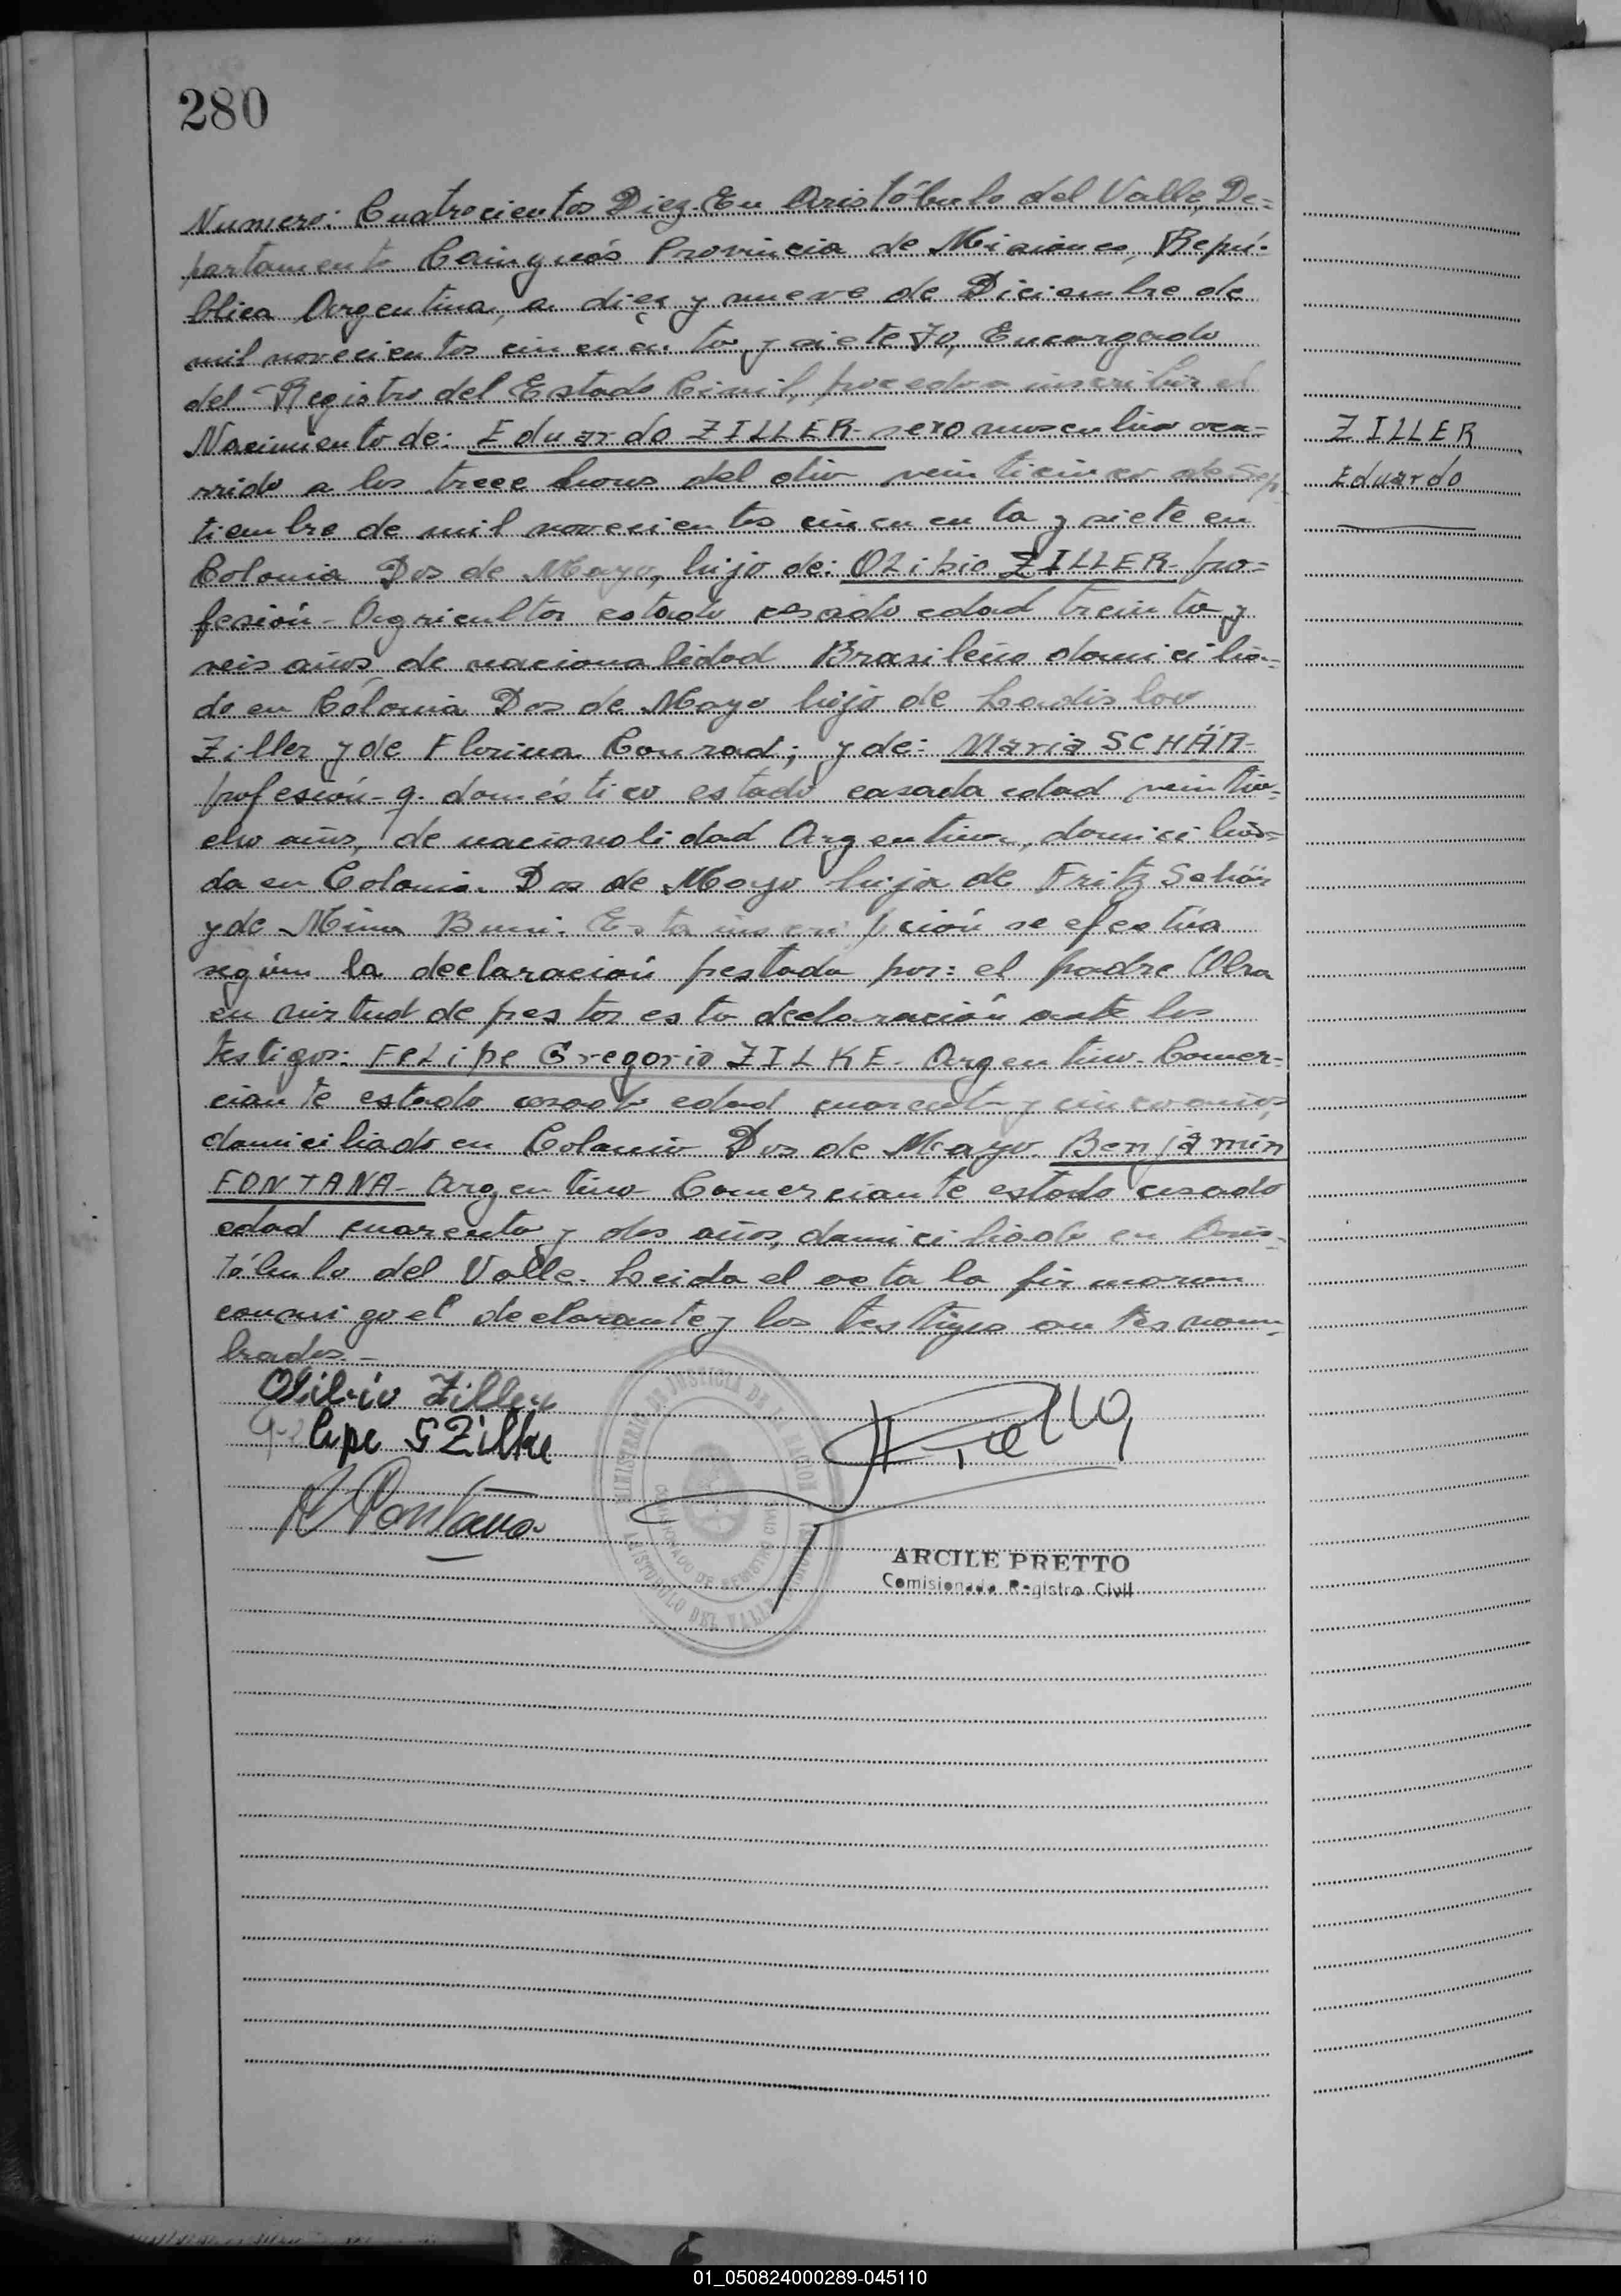 280
Numero: Cuatrocientos Diez. En Aristóbulo del Valle, De=
partamento Cainguás Provincia de Misiones, Repú-
blica Argentina, a diez y nueve de Diciembre de
mil novecientos cincuenta y siete Yo, Encargado
del Registro del Estado Civil, procedo a inscribir el
Nacimiento de: Eduardo ZILLER- sexo masculino ocu=
rrido a las trece horas del dia veinticinco de Sep
tiembre de mil novecientos cincuenta y siete en
Colonia Dos de Mayo, hijo de: OLibio ZILLER- pro=
fesión- Agricultor estado casado edad treinta y
seis años de nacionalidad Brasileño domicilia=
do en Colonia Dos de Mayo hijo de Ladislao
Ziller y de Florina Conrad; y de: Maria SCHÄR-
profesión- q. doméstico estado casada edad veintio=
cho años, de nacionalidad Argentina, domicilia=
da en Colonia Dos de Mayo hija de Fritz Schär
y de Mina Esta inscripción se efectúa
según la declaración prestada por: el padre Obra
en virtud de prestar esta declaración ante los
testigos: FeLipe Gregorio ZILKE- Argentino- Comer-
ciante estado casado edad cuarenta y cinco años,
domiciliado en Colonia Dos de Mayo Benjamin
FONTANA- Argentino Comerciante estado casado
edad cuarenta y dos años, domiciliado en Aris-
tóbulo del Valle. Leida el acta la firmaron
conmigo el declarante y los testigos antes nom-
brados.-
ZILLER
Eduardo
Olibio Ziller
Felipe G Zilke
Fontana
MINISTERIO DE JUSTICIA DE LA NACION
ARISTOBULO DEL VALLE
ARCILE PRETTO
Comisionado Registro Civil
01_050824000289-045110